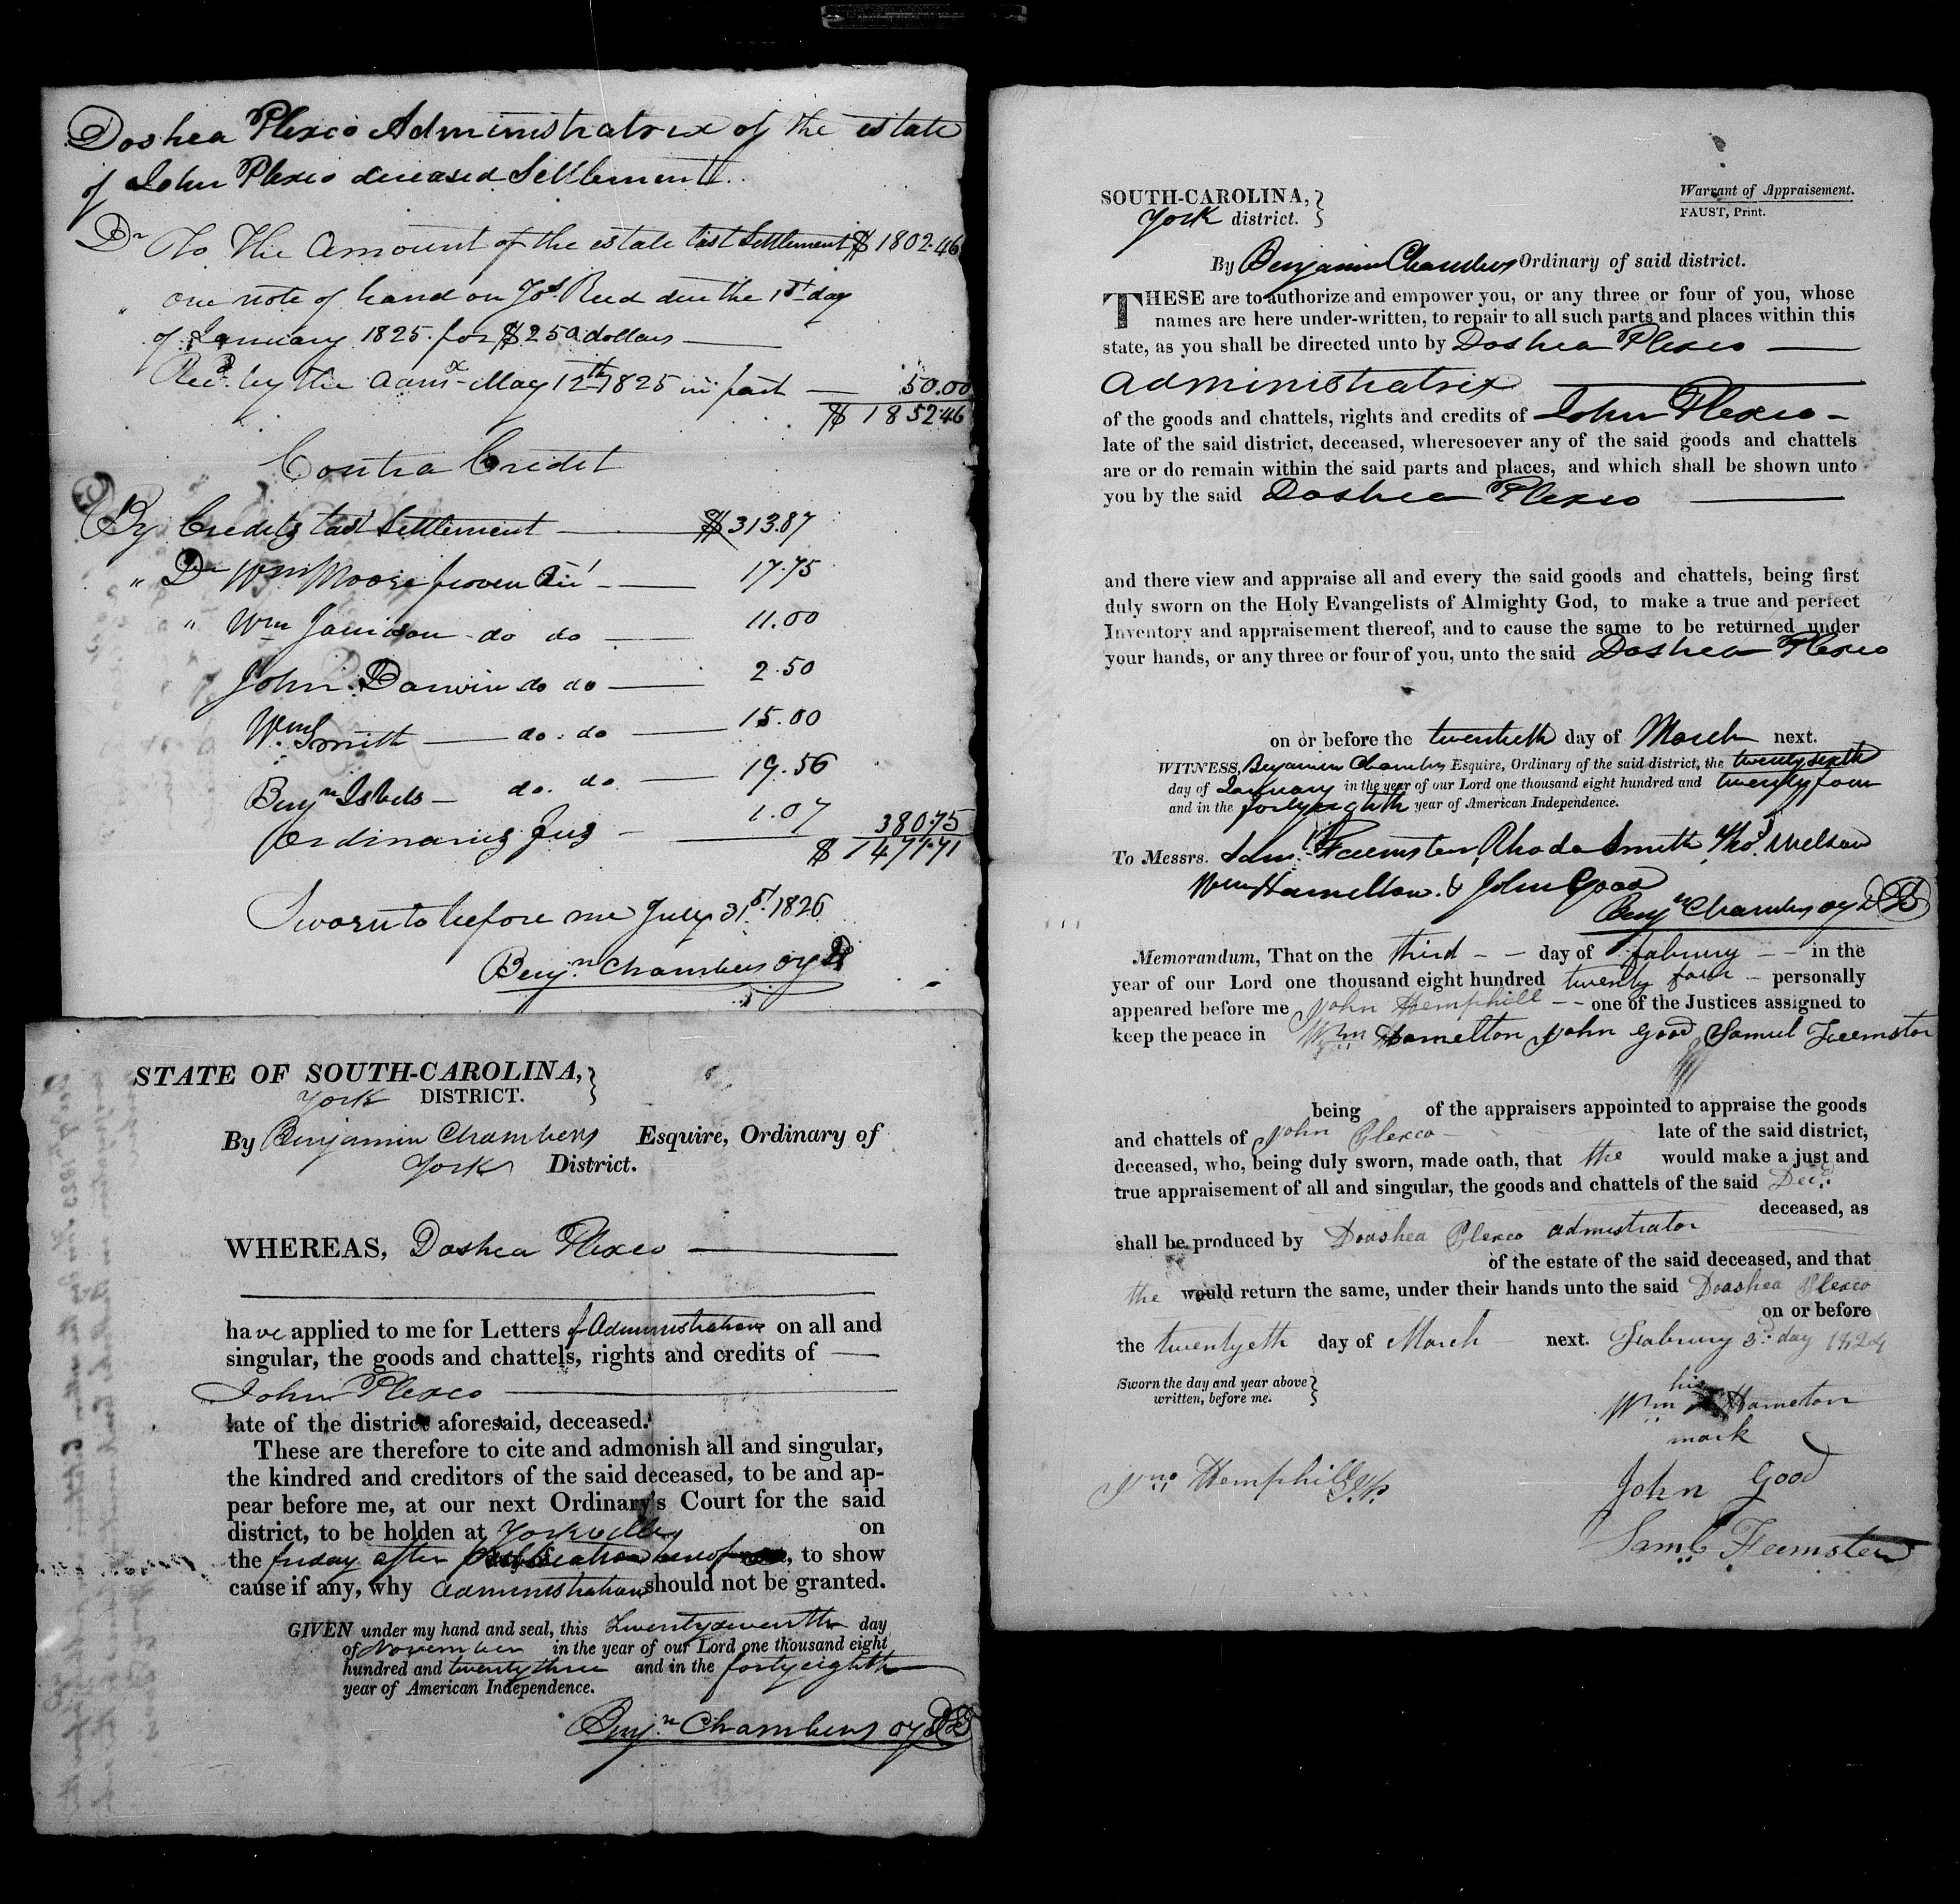 Doshea Plexco Administratrix of the estate
of John Plexco deceased Settlement.
Dr To The Amount of the estate last Settlement $ 1802.46
" one note of hand on Jos. Reed due the 1st day
of January 1825. for $250 dollars
Recd. by the admx May 12th 1825 in part — 50.00
$ 1852.46
Contra Credit
By Credits last Settlement — $313.87
" Dr Wm Moore proven — 17.75
" Wm Jamison do do — 11.00
John Darwin do do — 2.50
Wm. Smith — do. do — 15.00
Benjn Isbels — do. do — 19.56
Ordinaries — 1.07 380.75
$ 1471.71
Sworn to before me July 31st. 1826
Benjn. Chambers oyD
STATE OF SOUTH-CAROLINA,
York DISTRICT.
By Benjamin Chambers Esquire, Ordinary of
York District.
WHEREAS, Doshea Plexco
have applied to me for Letters of Administration on all and
singular, the goods and chattels, rights and credits of
John Plexco
late of the district aforesaid, deceased.
These are therefore to cite and admonish all and singular,
the kindred and creditors of the said deceased, to be and ap-
pear before me, at our next Ordinary's Court for the said
district, to be holden at Yorkville on
the friday after publication hereof, to show
cause if any, why administration should not be granted.
GIVEN under my hand and seal, this Twentyseventh day
of November in the year of our Lord one thousand eight
hundred and twenty three and in the fortyeighth
year of American Independence.
Benjn. Chambers oyD
SOUTH-CAROLINA,
York district.
Warrant of Appraisement.
FAUST, Print.
By Benjamin Chambers Ordinary of said district.
THESE are to authorize and empower you, or any three or four of you, whose
names are here under-written, to repair to all such parts and places within this
state, as you shall be directed unto by Doshea Plexco
administratrix
of the goods and chattels, rights and credits of John Plexco -
late of the said district, deceased, wheresoever any of the said goods and chattels
are or do remain within the said parts and places, and which shall be shown unto
you by the said Doshea Plexco
and there view and appraise all and every the said goods and chattels, being first
duly sworn on the Holy Evangelists of Almighty God, to make a true and perfect
Inventory and appraisement thereof, and to cause the same to be returned under
your hands, or any three or four of you, unto the said Doshea Plexco
on or before the twentieth day of March next.
WITNESS, Benjamin Chambers Esquire, Ordinary of the said district, the twentysixth
day of January in the year of our Lord one thousand eight hundred and twentyfour
and in the fortyeighth year of American Independence.
To Messrs. Saml. Feemster, Rhoda Smith, Thos.
Wm Hamelton. & John Good
Benjn Chambers oyD
Memorandum, That on the third - - day of fabrury - - in the
year of our Lord one thousand eight hundred twenty four - personally
appeared before me John Hemphill - - one of the Justices assigned to
keep the peace in Wm Hamelton John Good Samuel Feemster
being of the appraisers appointed to appraise the goods
and chattels of John Plexco late of the said district,
deceased, who, being duly sworn, made oath, that the would make a just and
true appraisement of all and singular, the goods and chattels of the said Decd.
deceased, as
shall be produced by Doashea Plexco admistrator
of the estate of the said deceased, and that
the would return the same, under their hands unto the said Doashea Plexco
on or before
the twentyeth day of March next. Fabrury 3d. day 1824
Sworn the day and year above
written, before me.
his
Wm Hameton
mark
Jno. Hemphill J.P.
John Good
Saml. Feemster